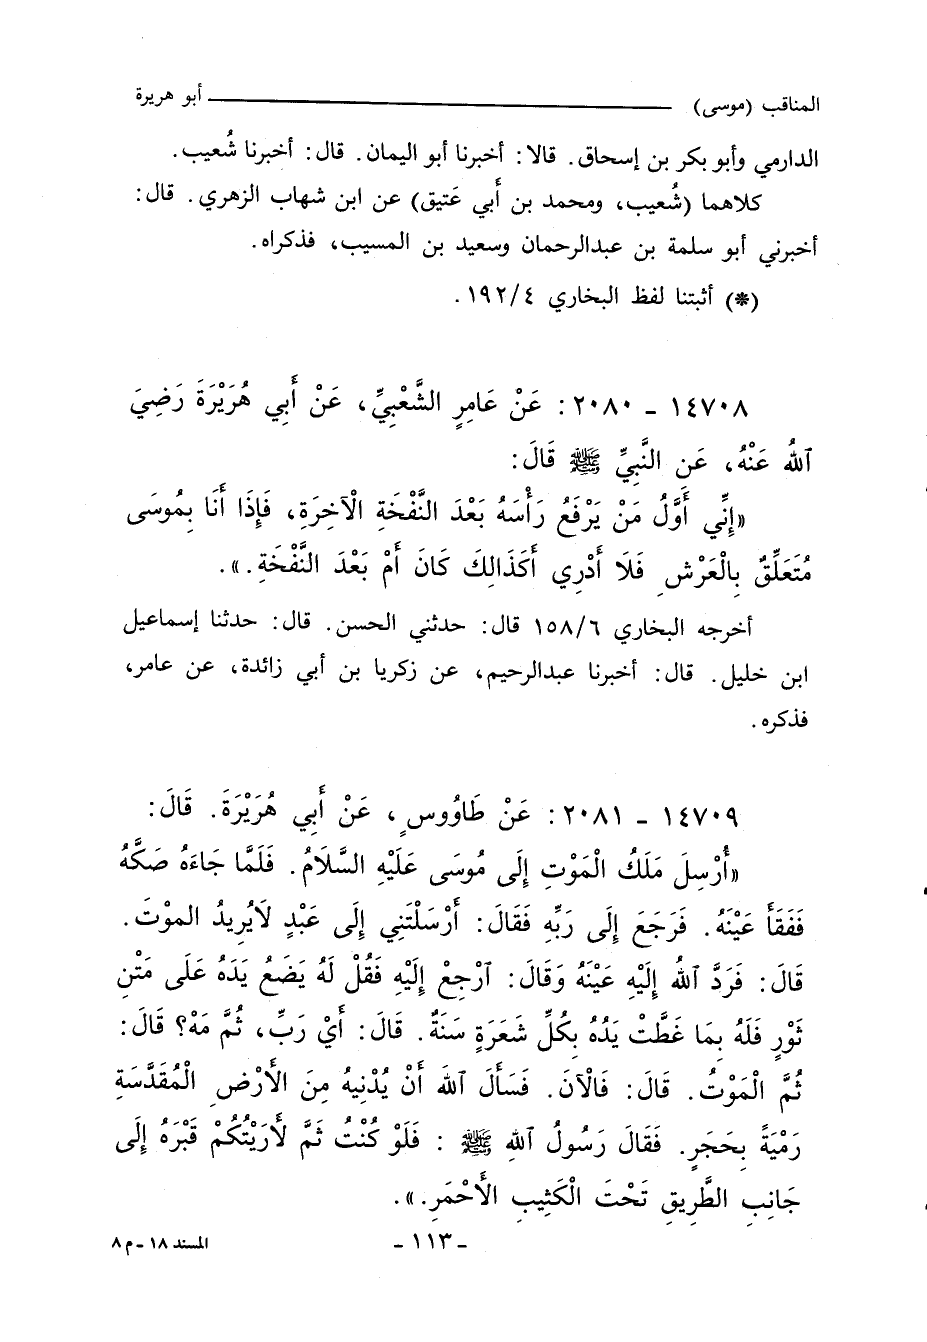 المناقب (موسى) ــــــ أبو هريرة
الدارمي وأبو بكر بن إسحاق. قالا: أخبرنا أبو اليمان. قال: أخبرنا شُعيب.
كلاهما (شُعيب، ومحمد بن أَبي عَتيق) عن ابن شهاب الزهري. قال:
أخبرني أبو سلمة بن عبدالرحمان وسعيد بن المسيب، فذكراه.
(*) أثبتنا لفظ البخاري ١٩٢/٤.
١٤٧٠٨ - ٢٠٨٠: عَنْ عَامِرٍ الشَّعْبِيِّ، عَنْ أَبِي هُرَيْرَةَ رَضِيَ
ٱللهُ عَنْهُ، عَنِ النَّبِيِّ ﷺ قَالَ:
«إِنِّي أَوَّلُ مَنْ يَرْفَعُ رَأْسَهُ بَعْدَ النَّفْخَةِ الْآخِرَةِ، فَإِذَا أَنَا بِمُوسَى
مُتَعَلِّقٌ بِالْعَرْشِ فَلَا أَدْرِي أَكَذَالِكَ كَانَ أَمْ بَعْدَ النَّفْخَةِ.».
أخرجه البخاري ١٥٨/٦ قال: حدثني الحسن. قال: حدثنا إسماعيل
ابن خليل. قال: أخبرنا عبدالرحيم، عن زكريا بن أبي زائدة، عن عامر،
فذكره.
١٤٧٠٩ - ٢٠٨١: عَنْ طَاوُوسٍ، عَنْ أَبِي هُرَيْرَةَ. قَالَ:
«أُرْسِلَ مَلَكُ الْمَوْتِ إِلَى مُوسَى عَلَيْهِ السَّلَامُ. فَلَمَّا جَاءَهُ صَكَّهُ
فَفَقَأَ عَيْنَهُ. فَرَجَعَ إِلَى رَبِّهِ فَقَالَ: أَرْسَلْتَنِي إِلَى عَبْدٍ لَايُرِيدُ الموْتَ.
قَالَ: فَرَدَّ ٱللهُ إِلَيْهِ عَيْنَهُ وَقَالَ: ٱرْجِعْ إِلَيْهِ فَقُلْ لَهُ يَضَعُ يَدَهُ عَلَى مَتْنِ
ثَوْرٍ فَلَهُ بِمَا غَطَّتْ يَدُهُ بِكُلِّ شَعَرَةٍ سَنَةٌ. قَالَ: أَيْ رَبِّ، ثُمَّ مَهْ؟ قَالَ:
ثُمَّ الْمَوْتُ. قَالَ: فَالْآنَ. فَسَأَلَ ٱللهَ أَنْ يُدْنِيهُ مِنَ الأَرْضِ الْمُقَدَّسَةِ
رَمْيَةً بِحَجَرٍ. فَقَالَ رَسُولُ ٱللهِ ﷺ : فَلَوْ كُنْتُ ثَمَّ لأَرَيْتُكُمْ قَبْرَهُ إِلَى
جَانِبِ الطَّرِيقِ تَحْتَ الْكَثِيبِ الأَحْمَرِ.».
- ١١٣ -
المسند ١٨ - م ٨